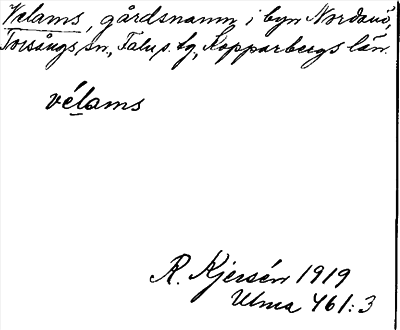 Velams, gårdsnamn i byn Nordanö,
Torsångs sn, Falu s. tg, Kopparbergs län.
vélams
R. Kjersén 1919
Ulma 461:3